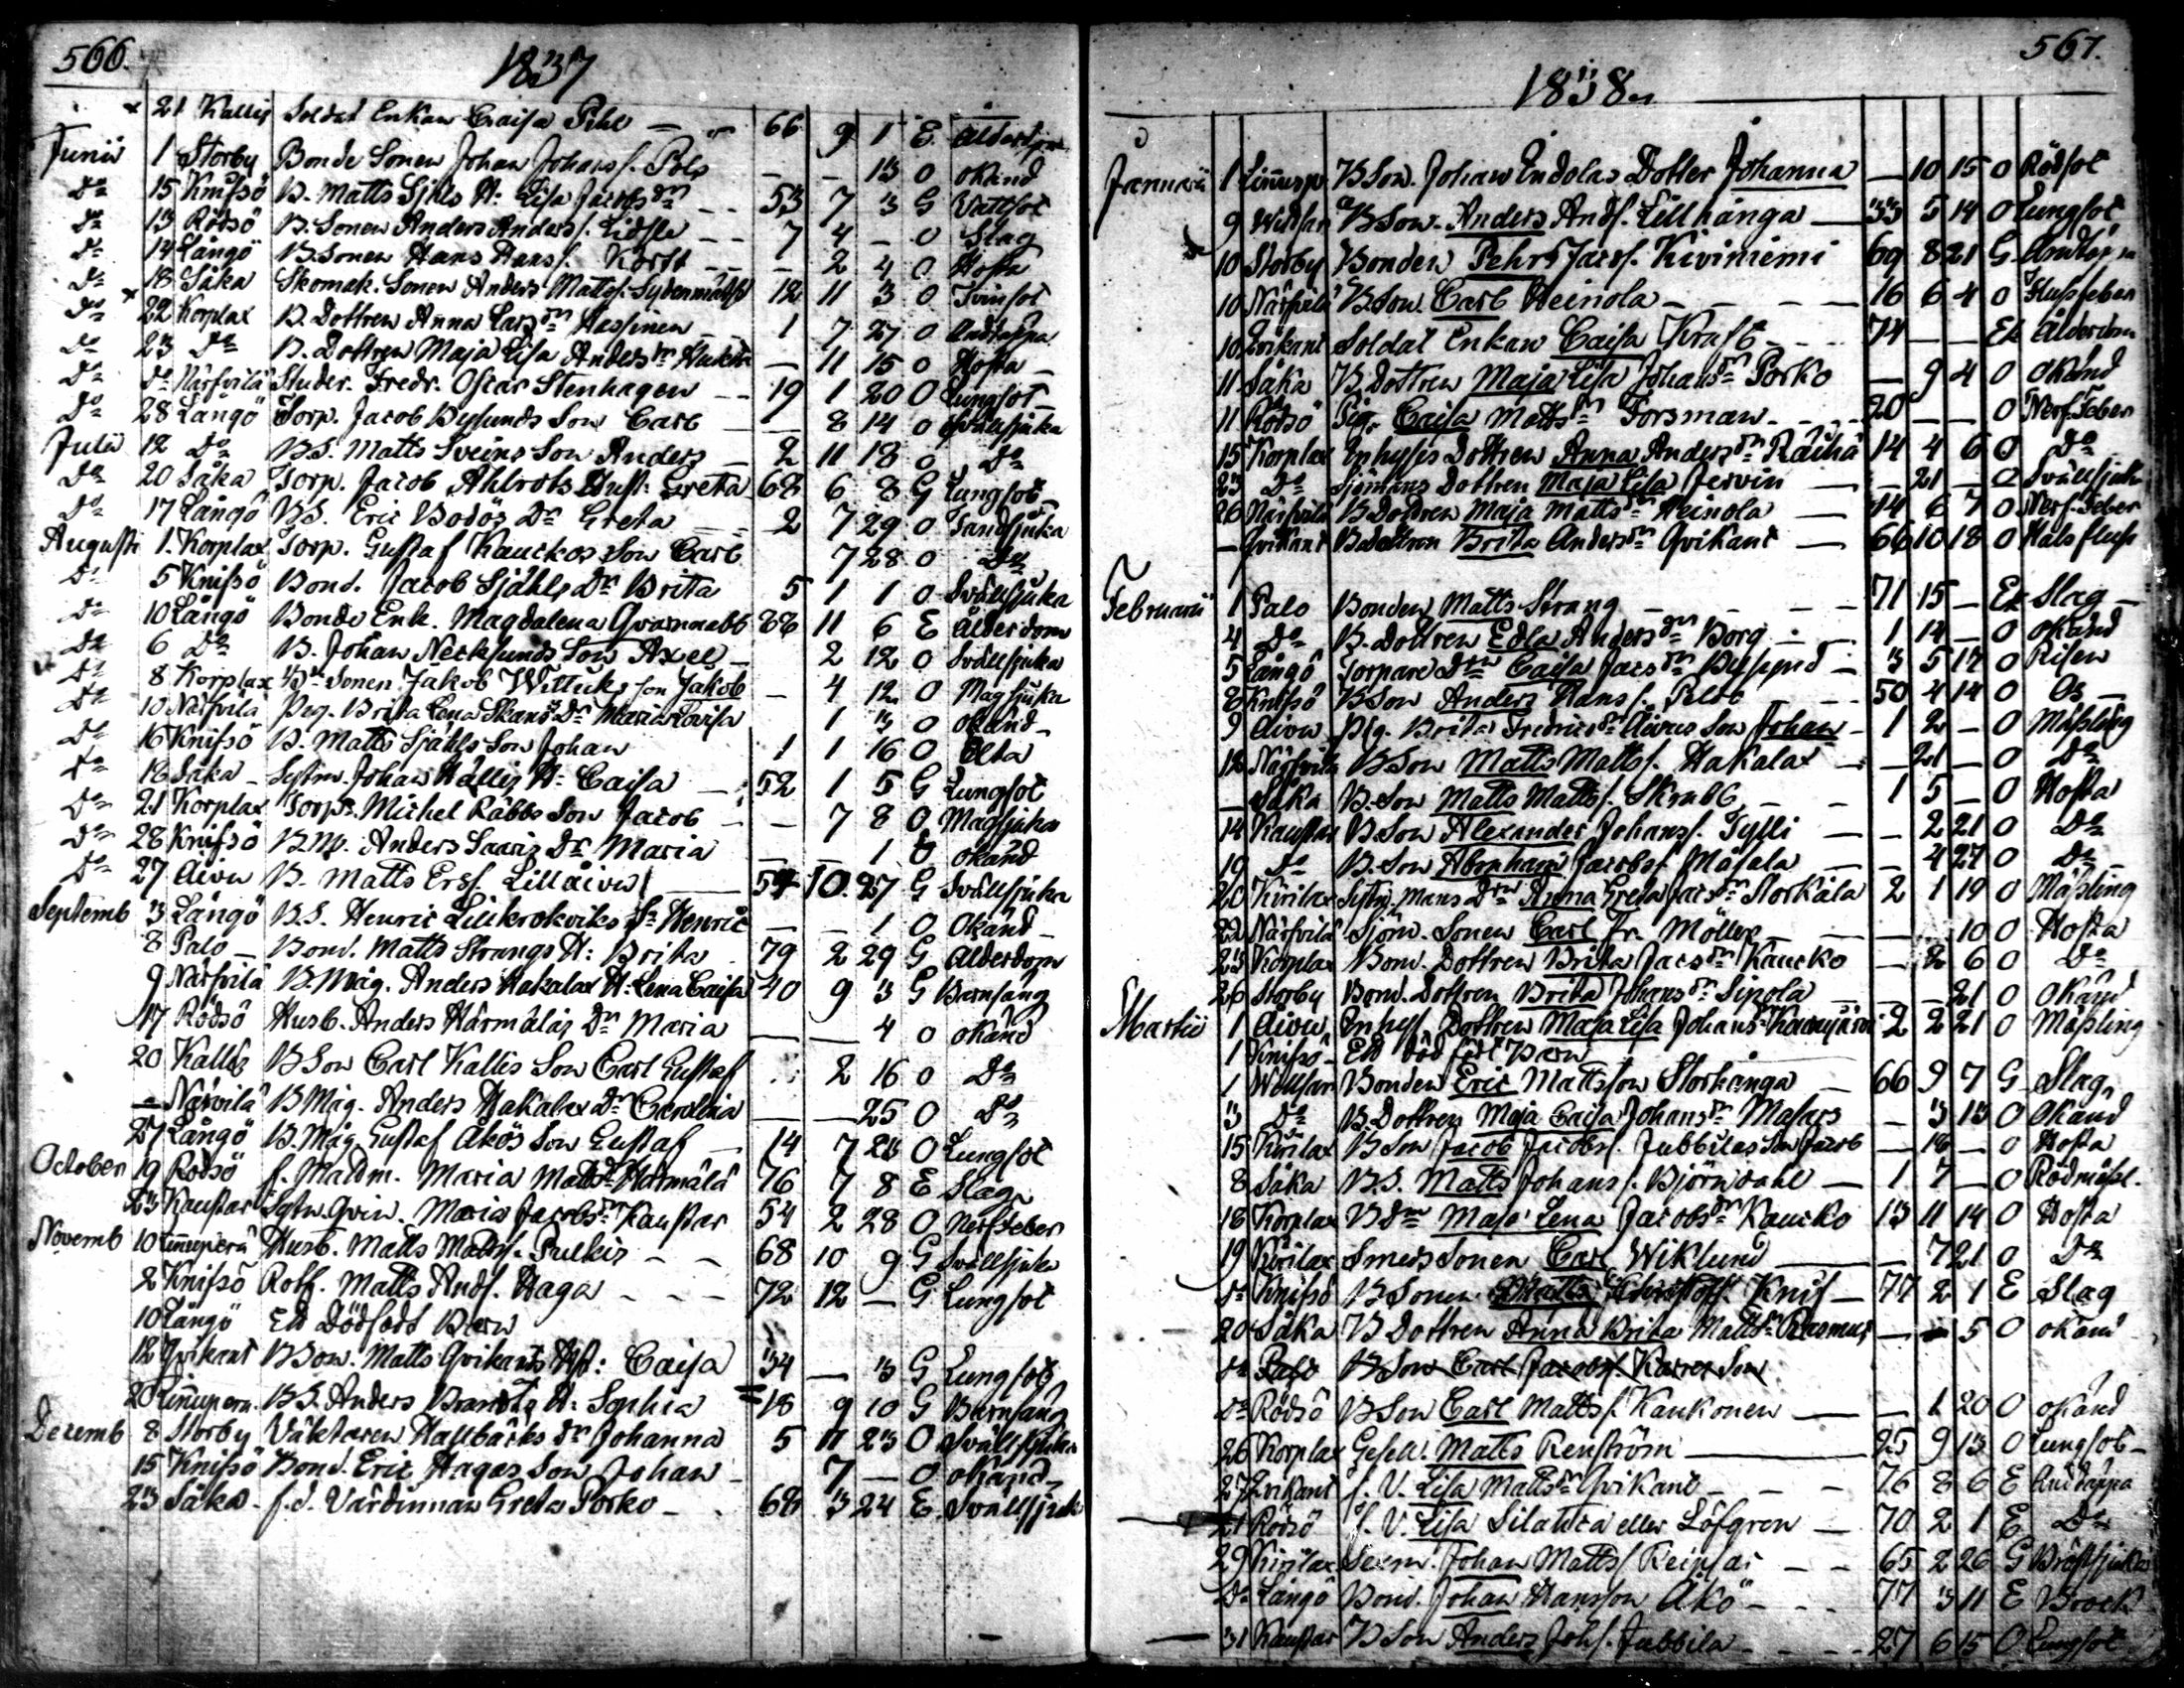 566.
1837
21 Kallis Soldat Enkan Caisa Pihl 66 9 1 E Ålderdom
Junii 1 Storby Bonde Sonen Johan Johans s. Pols — — 13 0 okänd
Do 15 Knifsö B. Matts Sjhls H: Lisa Jacobs dr 53 7 3 G Vattsot
Do 13 Rödsö B. Sonen Anders Anders s. 7 4 — 0 Slag
Do 14 Långö B Sonen Hans Hans s. Korft — 2 4 0 Hosta
Do 18 Såka Skomak. Sonen Anders Matts s. 12 11 3 0 Tvinsot
Do 22 Korplax B. Dottren Anna Lars dr Hassinen 1 7 27 0 Andtäppa
Do 23 Do B. Dottren Maja Lisa Anders dr — 11 15 0 Hosta
Do Do Närfvilä Studer. Fredr. Oscar Stenhagen 19 1 20 0 Lungsot
Do 28 Långö Torp. Jacob Bylunds Son Carl — 8 14 0 Svällsjuka
Julii 12 Do B.S. Matts Sveins Son Anders 2 11 18 0 Do
Do 20 Såka Torp. Jacob Ahlrots Hust: Greta 68 6 8 G Lungsot
Do 17 Långö B.S. Eric Bodös Dr Greta 2 7 29 0 Tandsjuka
Augusti 1. Korplax Torp. Gustaf Kauckos Son Carl 7 28 0 Do
Do 5 Knifsö Bond. Jacob Sjähls Dr Brita 5 1 1 0 Svällsjuka
Do 10 Långö Bonde Enk. Magdalena Qvarnnabb 88 11 6 E Ålderdom
Do 6 Do B. Johan Necksunds Son Axel 2 12 0 Svällsjuka
Do 8 Korplax Sonen Jakob Witticks son Jakob — 4 12 0 Magsjuka
Do 10 Närfvilä Pig. Brita Lena Skans Dr Maria Lovisa 1 3 0 okänd
Do 16 Knifsö B. Matts Sjähls Son Johan 1 1 16 0 Älta
Do 18 Såka Sytm. Johan Hällis H: Caisa 52 1 5 G Lungsot
Do 21 Korplax Torp. Michel Räbbs Son Jacob — 7 8 0 Magsjuka
Do 28 Knifsö B.M. Anders Saaris Dr Maria — — 1 0 okänd
Do 27 Aivu B. Matts Ers s. Lillaivu 54 10. 27 G Svällsjuka
Septemb 3 Långö B.S. Henric Lillkrokviks S: Henric — — 1 0 Okänd
8 Palo Bond. Matts Strangs H: Brita 79 2 29 G Ålderdom
9 Närfvilä B. Måg. Anders Hakalax H: Lena Caisa 40 9 3 G Barnsäng
17 Rödsö Husb. Anders Härmäläs Dr Maria — — 4 0 okänd
20 Kallis B Son Carl Kallis Son Carl Gustaf 2 16 0 Do
— Närvilä B Måg. Anders Hakalax Dr Carolina — — 25 0 Do
27 Långö B. Måg Gustaf Åkös Son Gustaf 14 7 28 0 Lungsot
October 19 Rödsö f. Maria Matts dr Härmälä 76 7 8 E Slag
23 Kaustar Sytn. qvin. Maria Jacobs dr Kaustar 54 2 28 0 Nerf feber
Novemb 10 Linnuperä Husb. Matts Matts s. Pulkis 68 10 9 G Svällsjuka
2 Knifsö Rotf. Matts And s. Haga 72 12 — G Lungsot
10 Långö Ett Dödfödt Barn
12 Qvikant B Son. Matts Qvikants Hst: Caisa 34 — 3 G Lungsot
20 Linnupera. B.S. Anders H: Sophia 18 9 10 G Barnsäng
Decemb 8 Storby Väktaren Hallbäcks dr Johanna 5 11 23 0 Svällsjuka
15 Knifsö Bond. Eric Hagas Son Johan 7 — 0 okänd
23 Såka f.d. Värdinnan Greta Porko 68 3 24 E Svällsjuk
567.
1838
Januarii 1 Linnup. B Son. Johan Indolas Dotter Johanna — 10 15 0 Rödsot
9 B Son. Anders And s. Lillhånga 33 5 14 0 Lungsot
10 Storby Bonden Pehr Jacs s. Kiviniemi 69 8 21 G Andtäppa
10 Närfvilä B Son. Carl Heinola 16 6 4 0 Flussfeber
10 Qvikant Soldat Enkan Caisa Kraft 74 — — Ek Ålderdom
11 Såka B. Dottren Maja Lisa Johans dr Porko — 9 4 0 okänd
11 Rödsö Pig. Caisa Matts dr Forsman 20 — — 0 Nerf. Feber
15 Korplax Inhyses Dottren Anna Anders dr Räihä 14 4 6 0 Do
23 Do Sjömans Dottren Maja Lisa Jervin — — 21 — 0 Svällsjuk
26 Närfvilä B Dottren Maja Matts dr Heinola 14 6 7 0 Nerf. Feber
— Qvikant B Dottren Brita Anders dr Qvikant 66 10 18 0 Halsfluss
Februarii 1 Palo Bonden Matts Strang 71 15 — Ek Slag
4 Do B. Dottren Edla Anders dr Borg 1 14 — 0 okänd
5 Långö Torpare Dtrn Caisa Jacs dr Bylund 3 5 17 0 Risen
8 Knifsö B Son Anders Hans s. Peldt 50 4 14 0 Do
9 Aivu Pig. Brita Fredrics dr Aivus Son Johan 1 2 — 0 Mässling
12 Närfvilä B Son Matts Matts s. Hakalax — 21 — 0 Do
— Såka B. Son Matts Matts s. Skrabb 1 5 — 0 Hosta
14 Kaustar B Son Alexander Johans s. Tylli — 2 21 0 Do
19 Do B. Son Abraham Jacobs s. Måsala — 4 27 0 Do
20 Kirilax Sytn. mans Drn Anna Greta Jacs dr Storkåla 2 1 19 0 Mässling
22 Närfvilä Sjöm. Sonen Carl Fr. Möller — — 10 0 Hosta
23 Korplax Bond. Dottren Brita Jacs dr Kaucko — 2 6 0 Do
26 Storby Bond. Dottren Brita Johans dr Sipola — — 21 0 Okänd
Martii 1 Aivu Inhys. Dottren Maja Lisa Johans dr 2 2 21 0 Mässling
1 Knifsö Ett död födt Barn
1 Bonden Eric Mattsson Storhånga 66 9 7 G Slag
3 Do B. Dottren Maja Caisa Johans dr Masars — 3 13 0 Okänd
15 Kirilax B Son Jacob Jacobs s. Jubbilas Son Jacob — 18 — 0 Hosta
8 Såka B.S. Matts Johans s. Björndahl 1 7 — 0 Rödmässl.
18 Korplax B Drn Maja Lena Jacobs dr Kaucko 13 11 14 0 Hosta
19 Kirilax Smeds Sonen Carl Wiklund — 7 21 0 Do
Do Knifsö B Sonen Matts Knif 77 2 1 E Slag
20 Såka B Dottren Anna Brita Matts dr Rasmus — — 5 0 okänd
Do Palo B Son Carl Jacobs s. Karros Son
Do Rödsö B Son Carl Matts s. Kaukonen — 1 20 0 okänd
26 Korplax Gesell. Matts Renström 25 9 13 0 Lungsot
27 Qvikant f. V. Lisa Matts dr Qvikant 76 8 6 E Andtäppa
21 Rödsö f. V. Lisa Silahka eller Löfgren 70 2 1 E Do
29 Kirilax Sexm. Johan Matts s. Reipsar 65 2 26 G Bröstsjuka
Do Långö Bond. Johan Hansson Åkö 77 3 11 E Brock
31 Kaustar B Son Anders Joh s. Jubbila 27 6 15 0 Lungsot